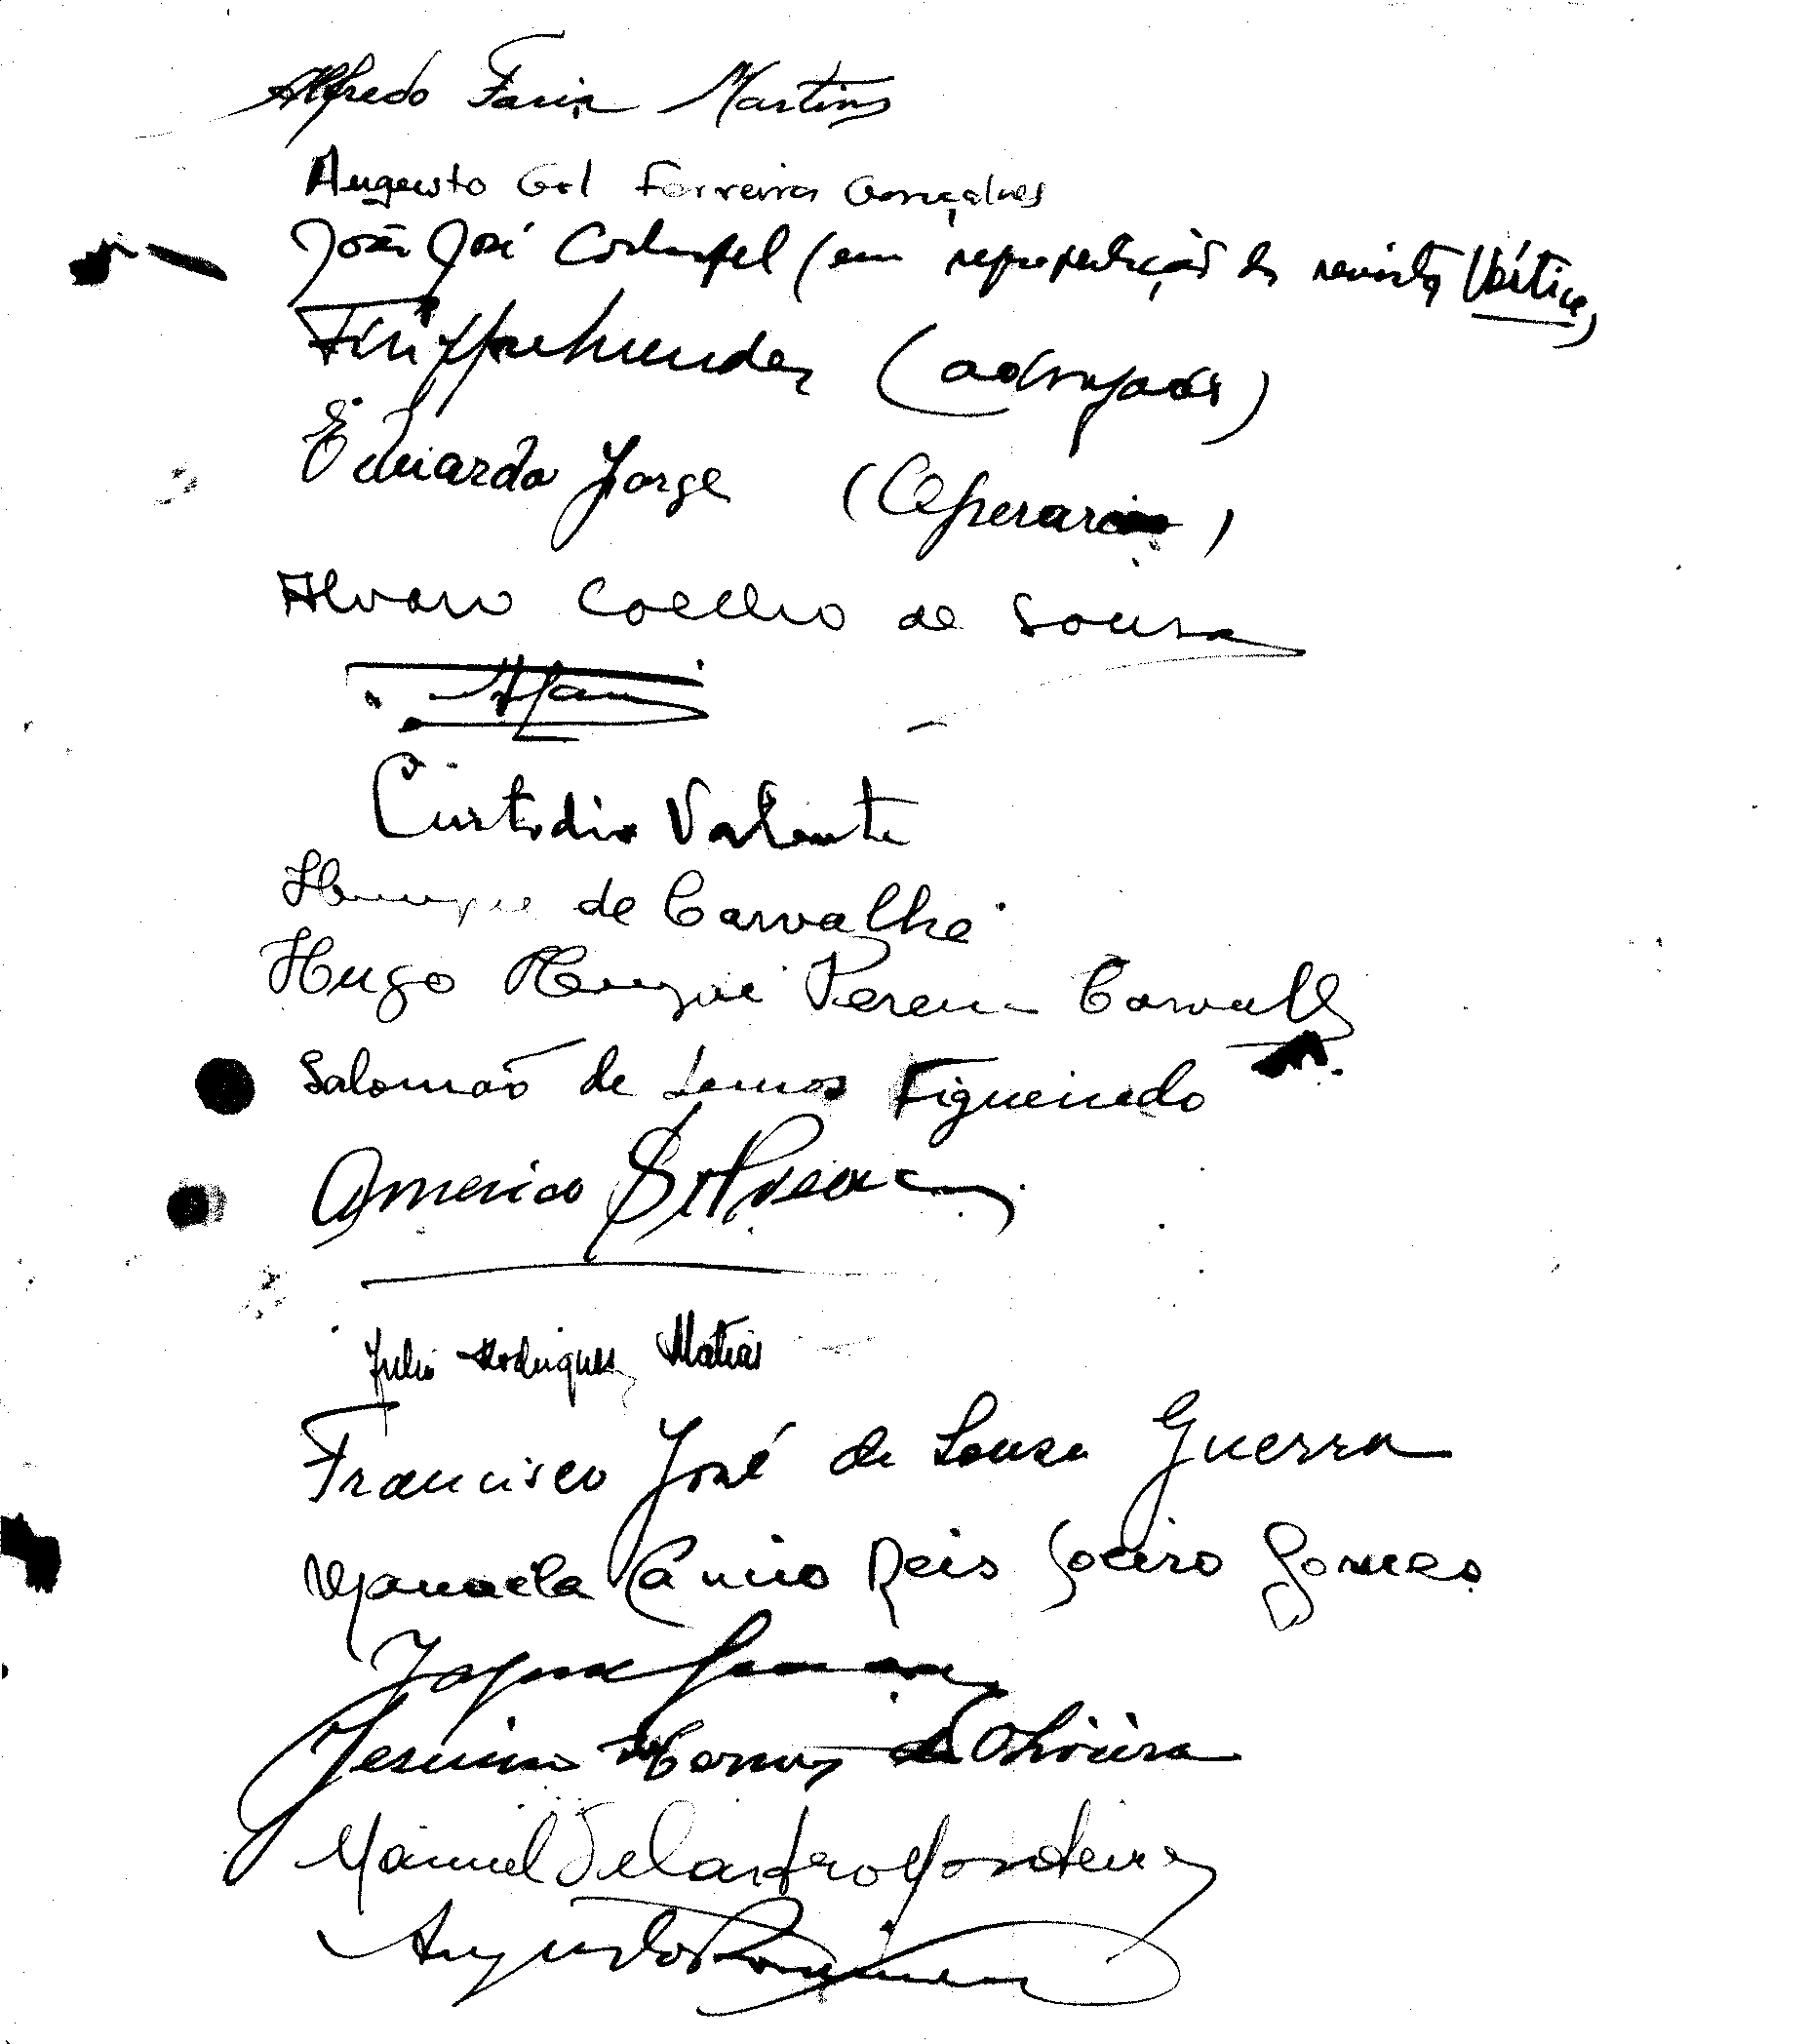 Alfredo Faria Martins
Augusto Gil Ferreira Gonçalves
João José Cochofel (em representação da revista Vértice)
(advogado)
Eduardo Jorge (Operario)
Alvaro Coelho de Sousa
Custodio Valente
Henrique de Carvalho
Hugo Henrique Pereira Carvalho
Salomão de Lemos Figueiredo
Americo
Julio Rodrigues Matias
Francisco José de Sousa Guerra
Manuela Câncio Reis Soeiro Gomes
Jesuino de Oliveira
Manuel de Castro Monteiro
Augusto